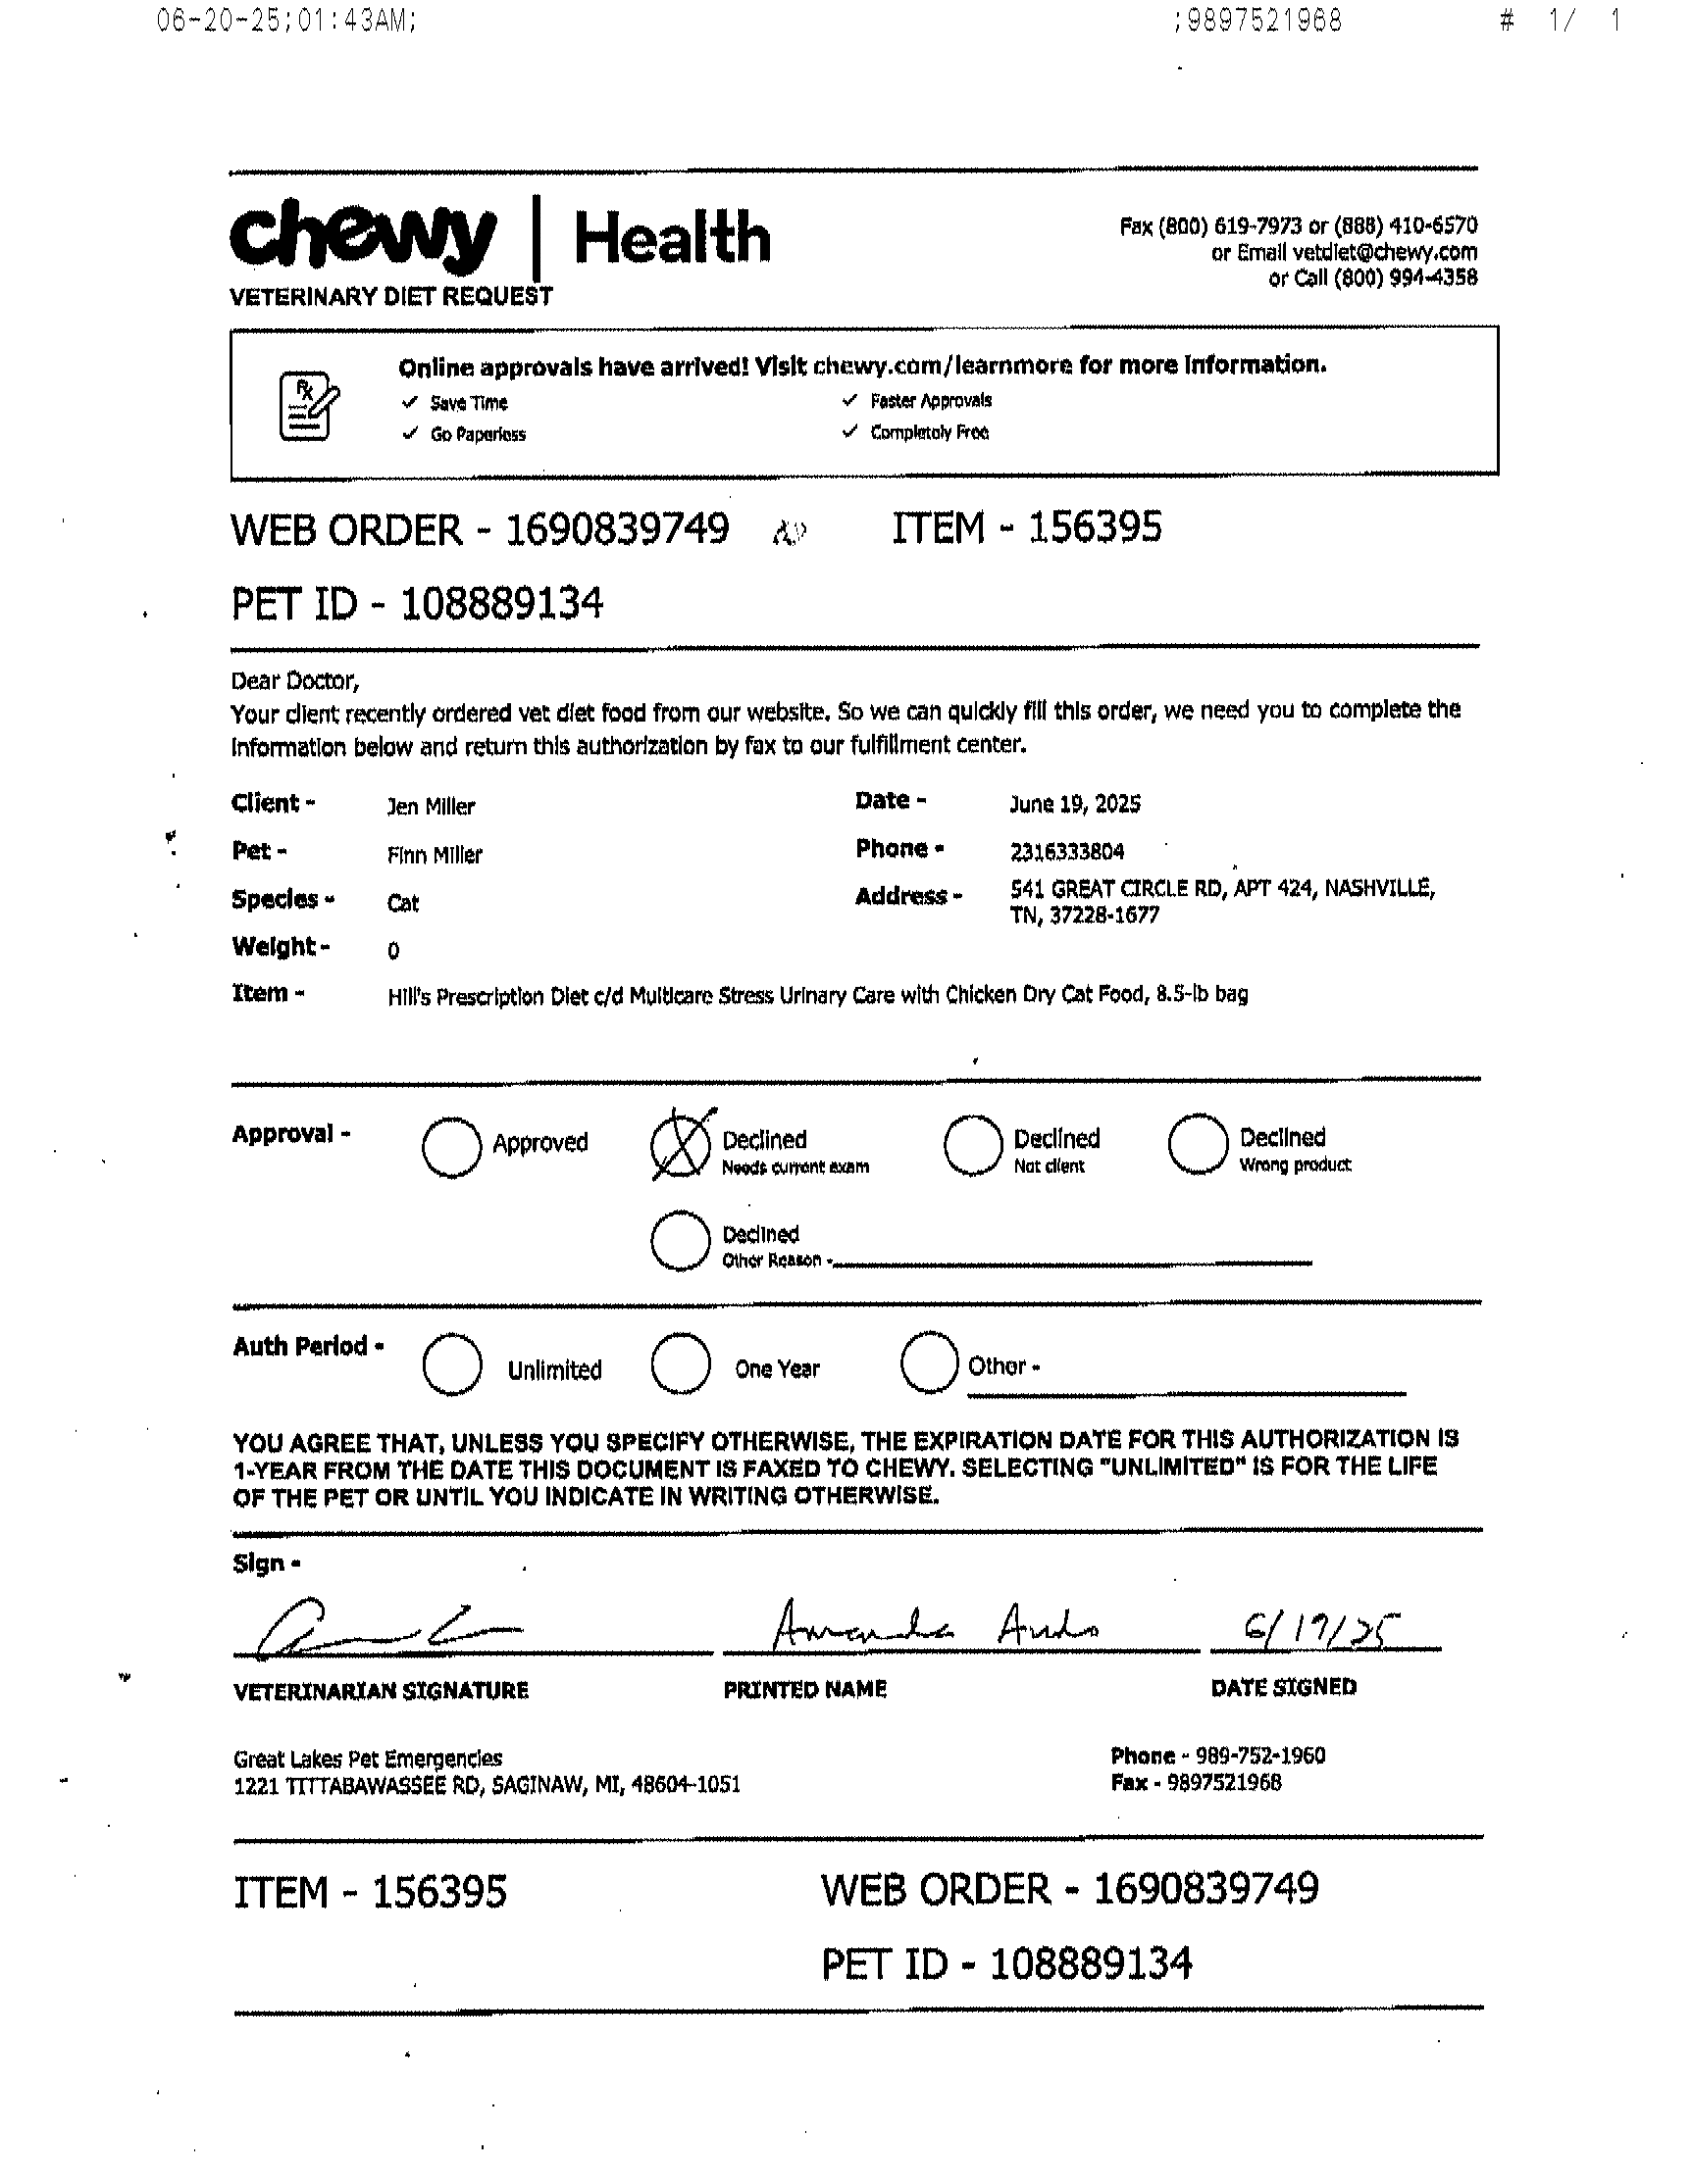 06-20-25;01:43AM; ;9897521968 # 1/ 1
chewy | Health
Fax (800) 619-7973 or (888) 410-6570
or Email vetdiet@chewy.com
or Call (800) 994-4358
VETERINARY DIET REQUEST
Online approvals have arrived! Visit chewy.com/learnmore for more information.
✓ Save Time ✓ Faster Approvals
✓ Go Paperless ✓ Completely Free
WEB ORDER - 1690839749 ITEM - 156395
PET ID - 108889134
Dear Doctor,
Your client recently ordered vet diet food from our website. So we can quickly fill this order, we need you to complete the
information below and return this authorization by fax to our fulfillment center.
Client - Jen Miller Date - June 19, 2025
Pet - Finn Miller Phone - 2316333804
Species - Cat Address - 541 GREAT CIRCLE RD, APT 424, NASHVILLE,
TN, 37228-1677
Weight - 0
Item - Hill's Prescription Diet c/d Multicare Stress Urinary Care with Chicken Dry Cat Food, 8.5-lb bag
Approval - Approved Declined Declined Declined
Needs current exam Not client Wrong product
Declined
Other Reason -
Auth Period - Unlimited One Year Other -
YOU AGREE THAT, UNLESS YOU SPECIFY OTHERWISE, THE EXPIRATION DATE FOR THIS AUTHORIZATION IS
1-YEAR FROM THE DATE THIS DOCUMENT IS FAXED TO CHEWY. SELECTING "UNLIMITED" IS FOR THE LIFE
OF THE PET OR UNTIL YOU INDICATE IN WRITING OTHERWISE.
Sign -
Amanda 6/19/25
VETERINARIAN SIGNATURE PRINTED NAME DATE SIGNED
Great Lakes Pet Emergencies Phone - 989-752-1960
1221 TITTABAWASSEE RD, SAGINAW, MI, 48604-1051 Fax - 9897521968
ITEM - 156395 WEB ORDER - 1690839749
PET ID - 108889134